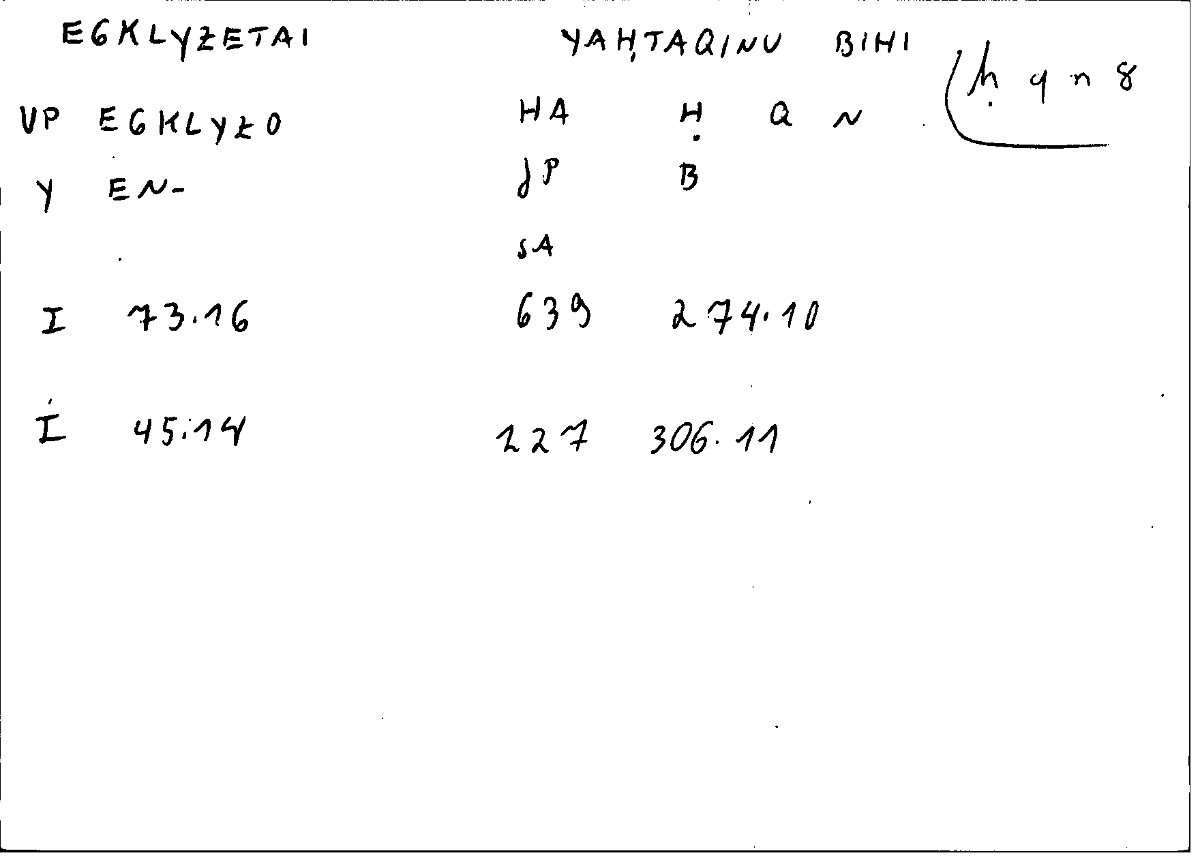 EGKLYŻETAI YAḤTAQINU BIHI
ḥ q n 8
VP EGKLYŻO HA Ḥ Q N
Y EN- JP B
SA
I 73.16 639 274.10
İ 45.14 227 306.11